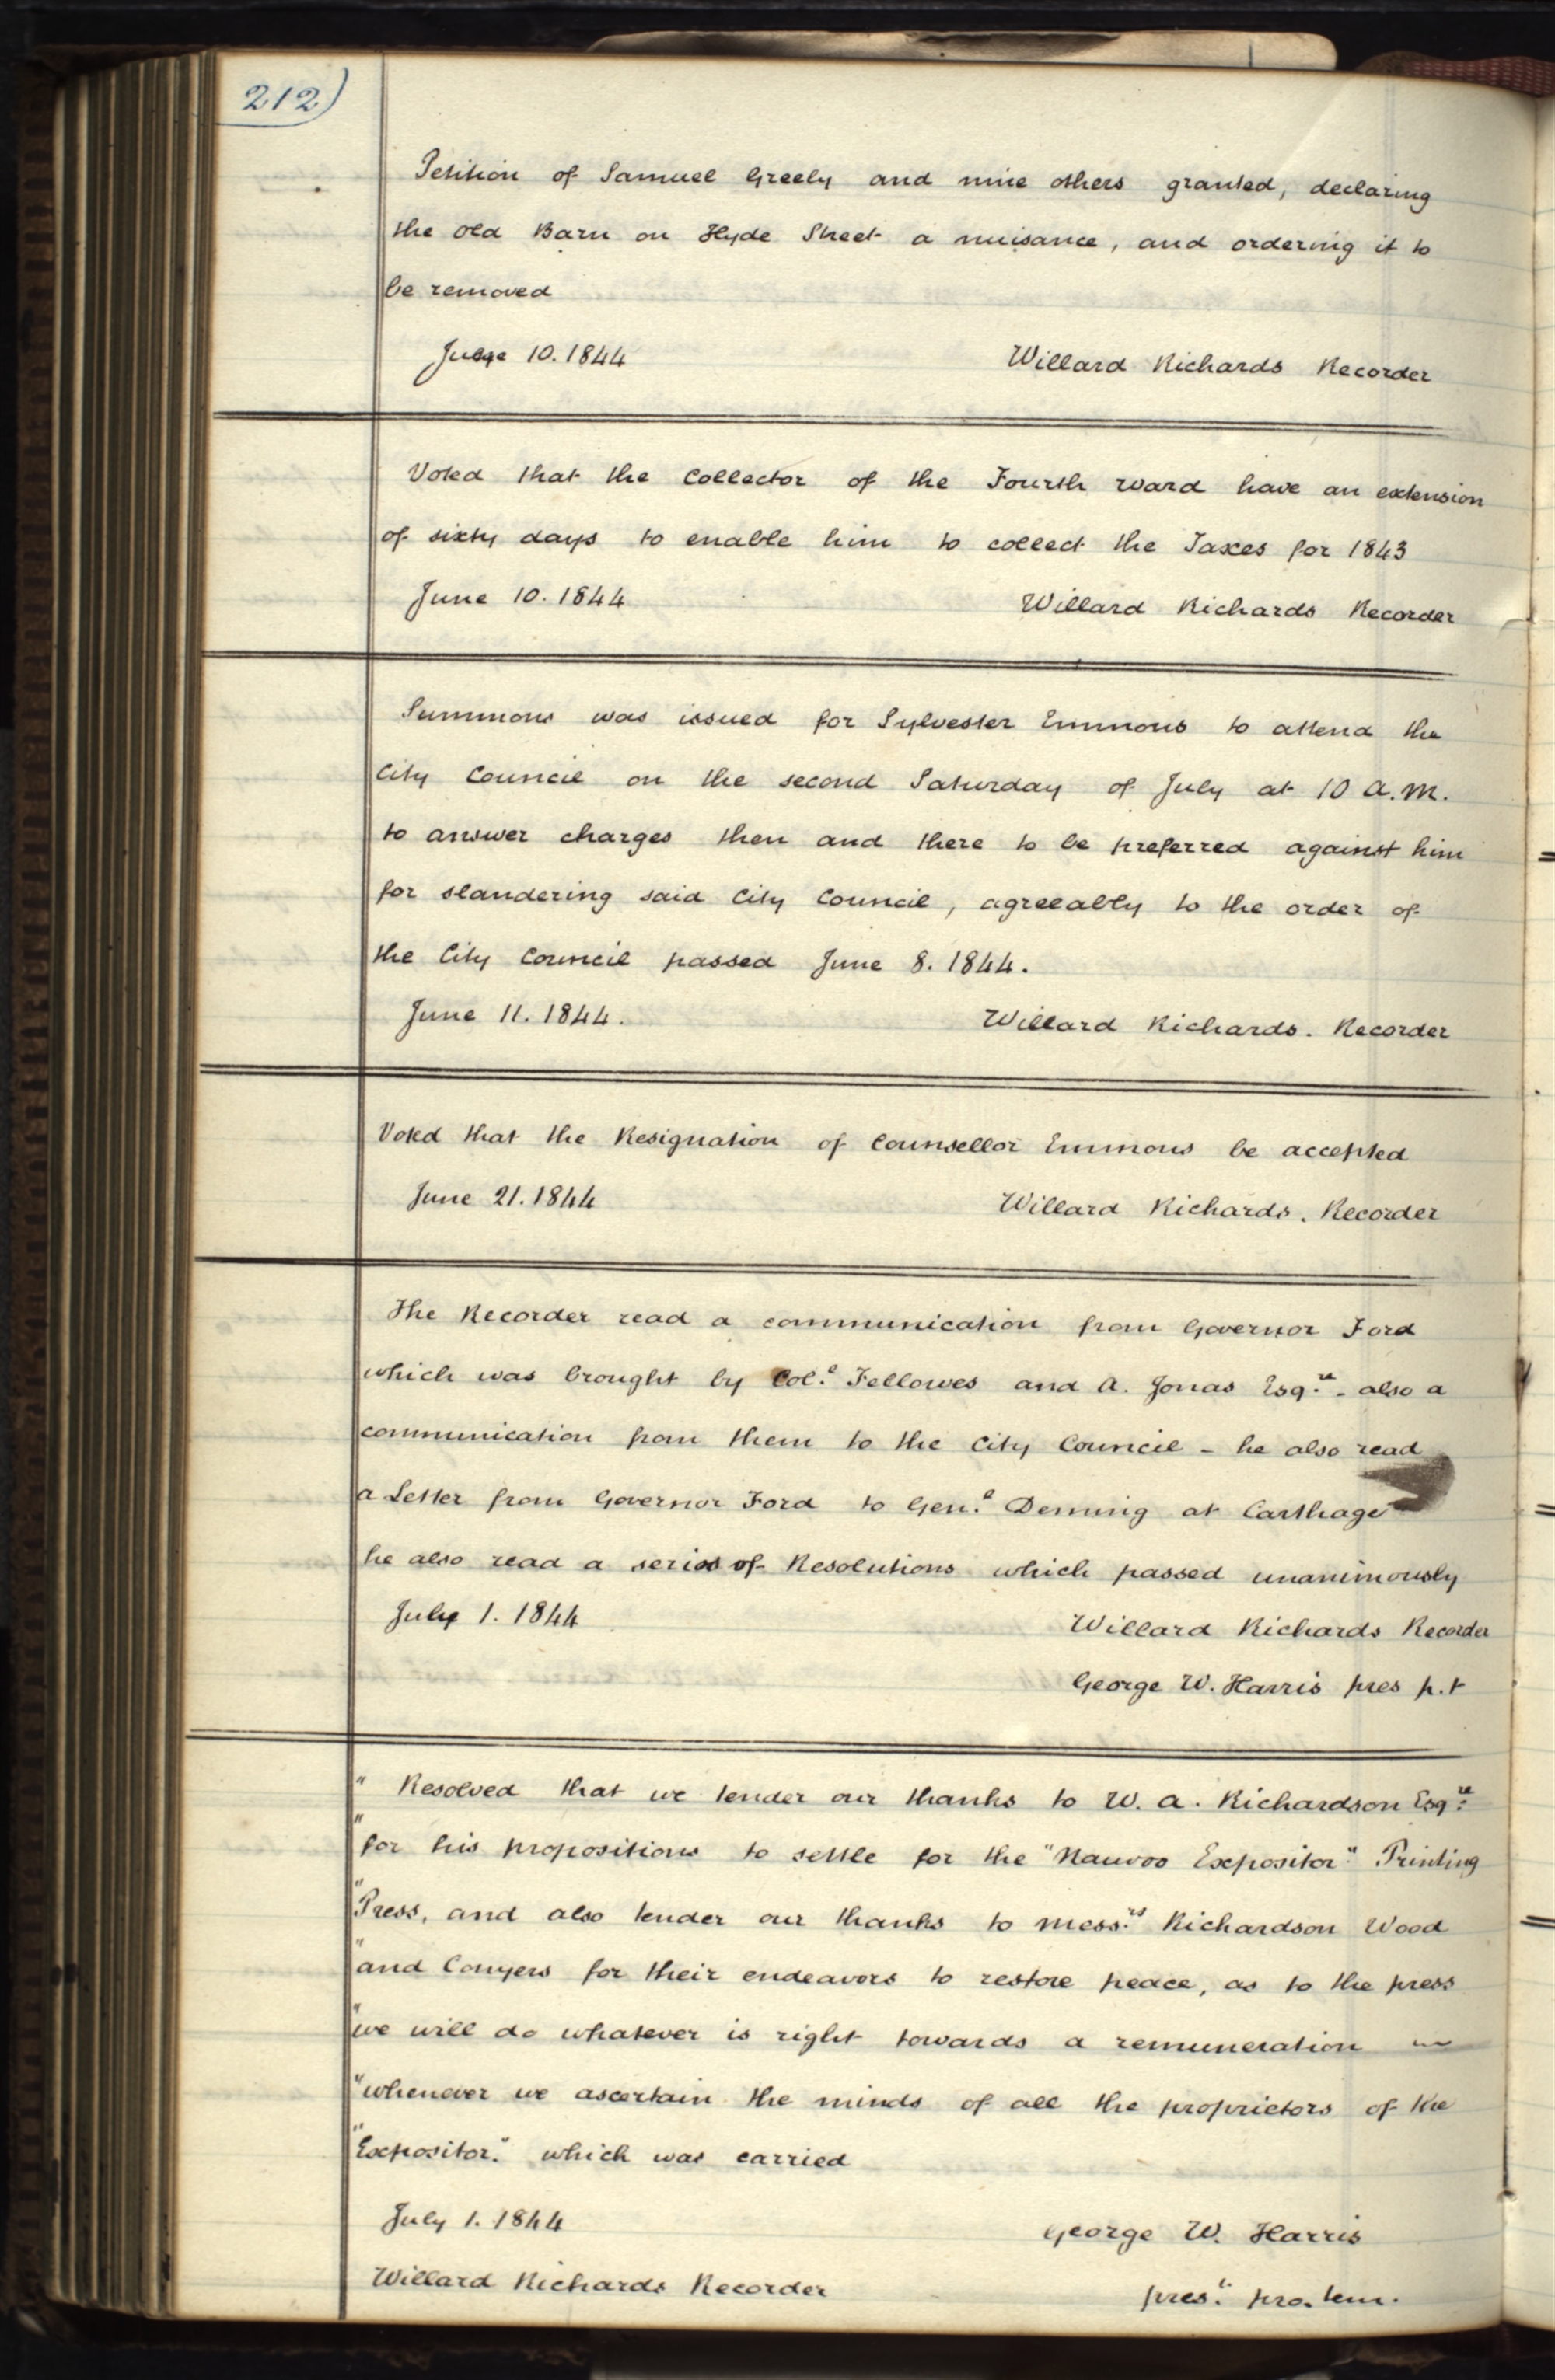 212)
Petition of Samuel Greely and nine others granted, declaring
the old Barn on Hyde Street a nuisance, and ordering it to
be removed
June 10. 1844 Willard Richards Recorder
Voted that the Collector of the Fourth ward have an extension
of sixty days to enable him to collect the Taxes for 1843
June 10. 1844 Willard Richards Recorder
Summons was issued for Sylvester Emmons to attend the
City Council on the second Saturday of July at 10 A.M.
to answer charges then and there to be preferred against him
for slandering said City Council, agreeably to the order of
the City Council passed June 8. 1844.
June 11. 1844. Willard Richards. Recorder
Voted that the Resignation of Counsellor Emmons be accepted
June 21. 1844 Willard Richards. Recorder
The Recorder read a communication from Governor Ford
which was brought by Col.l Fellowes and A. Jonas Esq.re - also a
communication from them to the City Council - he also read
a Letter from Governor Ford to Gen.l Deming at Carthage
he also read a series of Resolutions which passed unanimously
July 1. 1844 Willard Richards Recorder
George W. Harris pres p.t
" Resolved that we tender our thanks to W. A. Richardson Esq.re
" for his propositions to settle for the "Nauvoo Expositor" Printing
" Press, and also tender our thanks to Mess.rs Richardson Wood
" and Conyers for their endeavors to restore peace, as to the press
" we will do whatever is right towards a remuneration
" whenever we ascertain the minds of all the proprietors of the
" Expositor." which was carried
July 1. 1844 George W. Harris
Willard Richards Recorder pres.t pro. tem.